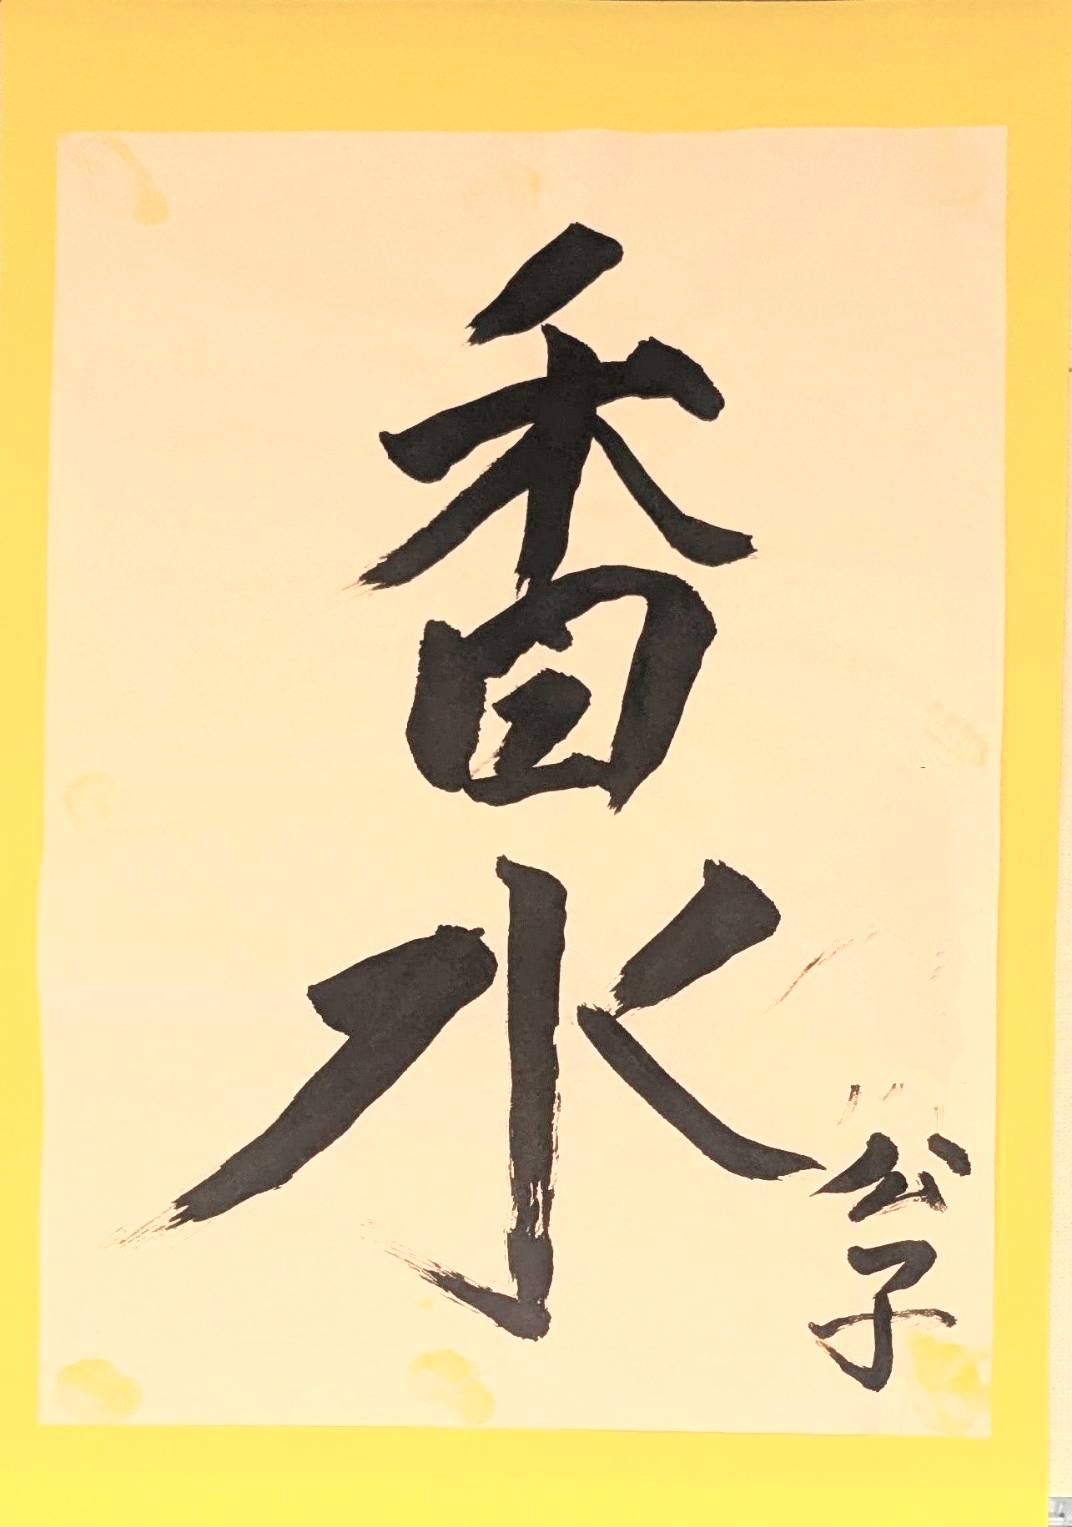 香水
公子